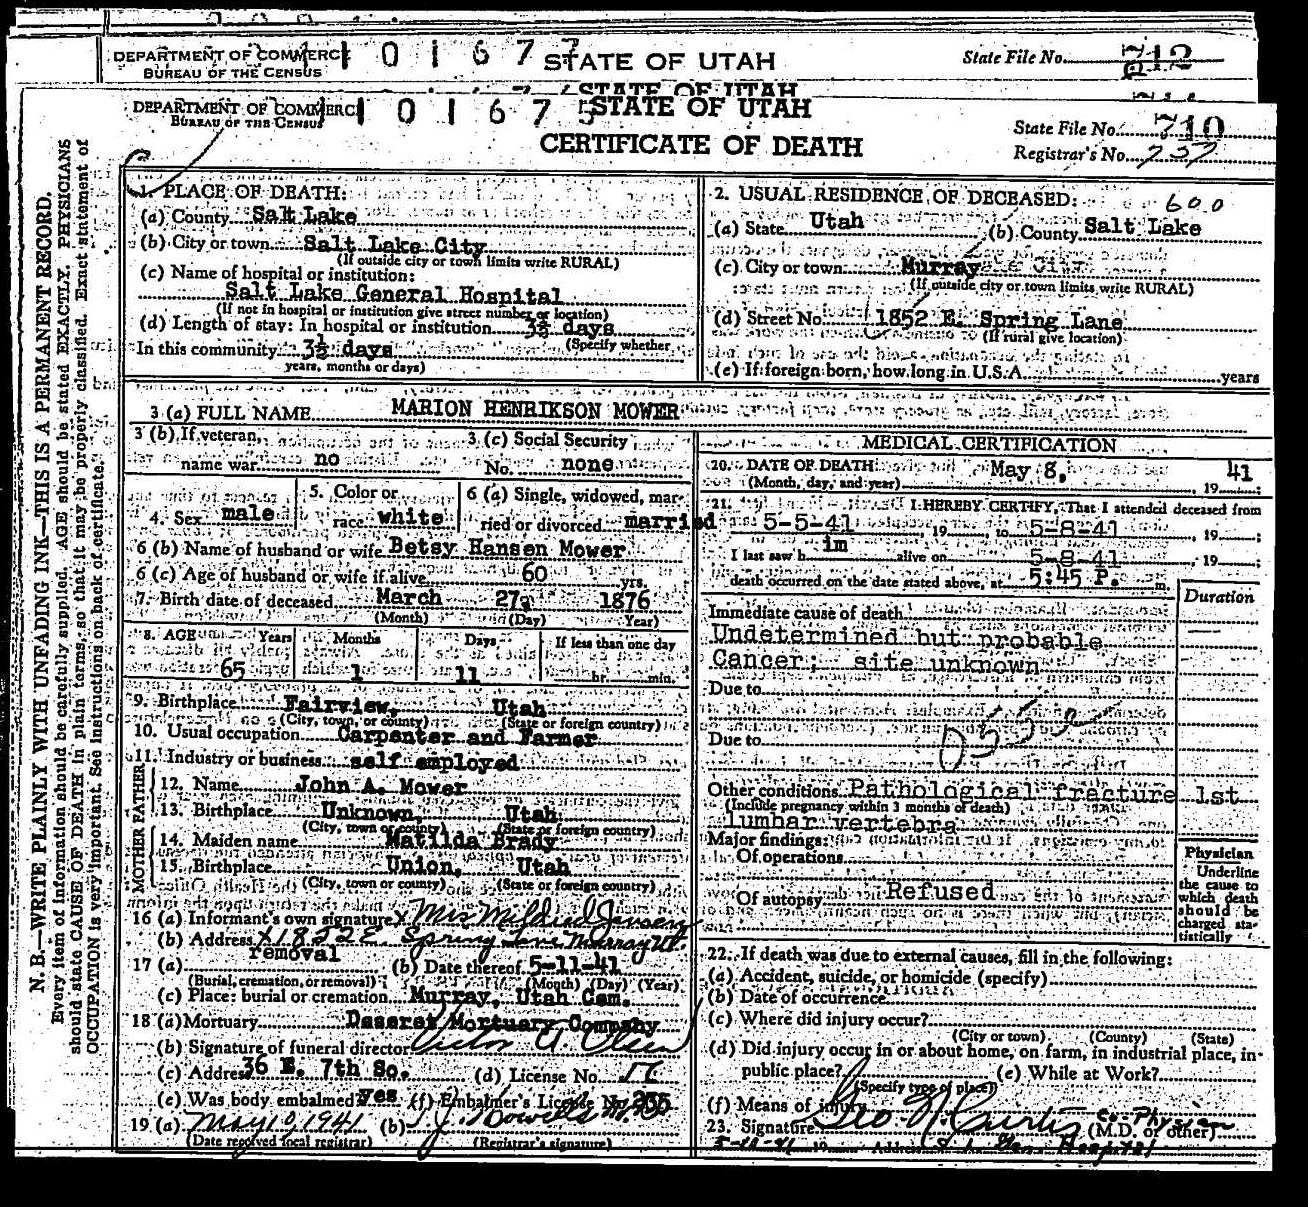 DEPARTMENT OF COMMERCE
BUREAU OF THE CENSUS
1 0 1 6 7 7
STATE OF UTAH
State File No. 712
DEPARTMENT OF COMMERCE
BUREAU OF THE CENSUS
1 0 1 6 7 5
STATE OF UTAH
CERTIFICATE OF DEATH
State File No. 710
Registrar's No. 757
N. B.—WRITE PLAINLY WITH UNFADING INK—THIS IS A PERMANENT RECORD.
Every item of information should be carefully supplied. AGE should be stated EXACTLY. PHYSICIANS
should state CAUSE OF DEATH in plain terms, so that it may be properly classified. Exact statement of
OCCUPATION is very important. See instructions on back of certificate.
1. PLACE OF DEATH:
(a) County Salt Lake
(b) City or town Salt Lake City
(If outside city or town limits write RURAL)
(c) Name of hospital or institution:
Salt Lake General Hospital
(If not in hospital or institution give street number or location)
(d) Length of stay: In hospital or institution 3½ days
(Specify whether
In this community 3½ days
years, months or days)
2. USUAL RESIDENCE OF DECEASED: 600
(a) State Utah (b) County Salt Lake
(c) City or town Murray
(If outside city or town limits write RURAL)
(d) Street No. 1852 E. Spring Lane
(If rural give location)
(e) If foreign born, how long in U.S.A. years
3 (a) FULL NAME MARION HENRIKSON MOWER
3 (b) If veteran, name war no
3 (c) Social Security No. none
4. Sex male
5. Color or race white
6 (a) Single, widowed, married or divorced married
6 (b) Name of husband or wife Betsy Hansen Mower
6 (c) Age of husband or wife if alive 60 yrs.
7. Birth date of deceased March 27, 1876
(Month) (Day) (Year)
8. AGE Years Months Days If less than one day
65 1 11 hr. min.
9. Birthplace Fairview, Utah
(City, town, or county) (State or foreign country)
10. Usual occupation Carpenter and Farmer
11. Industry or business self employed
FATHER
12. Name John A. Mower
13. Birthplace Unknown, Utah
(City, town or county) (State or foreign country)
MOTHER
14. Maiden name Matilda Brady
15. Birthplace Union, Utah
(City, town or county) (State or foreign country)
16 (a) Informant's own signature X Mrs Mildred Jensen
(b) Address X 1852 E. Spring Lane Murray Ut.
17 (a) removal (b) Date thereof 5-11-41
(Burial, cremation, or removal) (Month) (Day) (Year)
(c) Place: burial or cremation Murray, Utah Cem.
18 (a) Mortuary Deseret Mortuary Company
(b) Signature of funeral director Victor A. Olsen
(c) Address 36 E. 7th So. (d) License No.
(e) Was body embalmed? yes (f) Embalmer's License No.
19 (a) May 10, 1941 (b)
(Date received local registrar) (Registrar's signature)
MEDICAL CERTIFICATION
20. DATE OF DEATH: May 8, 1941
(Month, day, and year)
21. I HEREBY CERTIFY, That I attended deceased from
5-5-41, 19 to 5-8-41, 19 ;
I last saw h im alive on 5-8-41, 19 ;
death occurred on the date stated above, at 5:45 P. m.
Duration
Immediate cause of death
Undetermined but probable
Cancer; site unknown
Due to
Due to
Other conditions Pathological fracture 1st
(Include pregnancy within 3 months of death)
lumbar vertebra
Major findings:
Of operations
Of autopsy Refused
Physician
Underline
the cause to
which death
should be
charged sta-
tistically
22. If death was due to external causes, fill in the following:
(a) Accident, suicide, or homicide (specify)
(b) Date of occurrence
(c) Where did injury occur?
(City or town) (County) (State)
(d) Did injury occur in or about home, on farm, in industrial place, in
public place? (e) While at Work?
(Specify type of place)
(f) Means of injury
23. Signature Geo N. Curtis Co. Physician
(M.D. or other)
5-10-41 19 Address S. L. Gen. Hospital